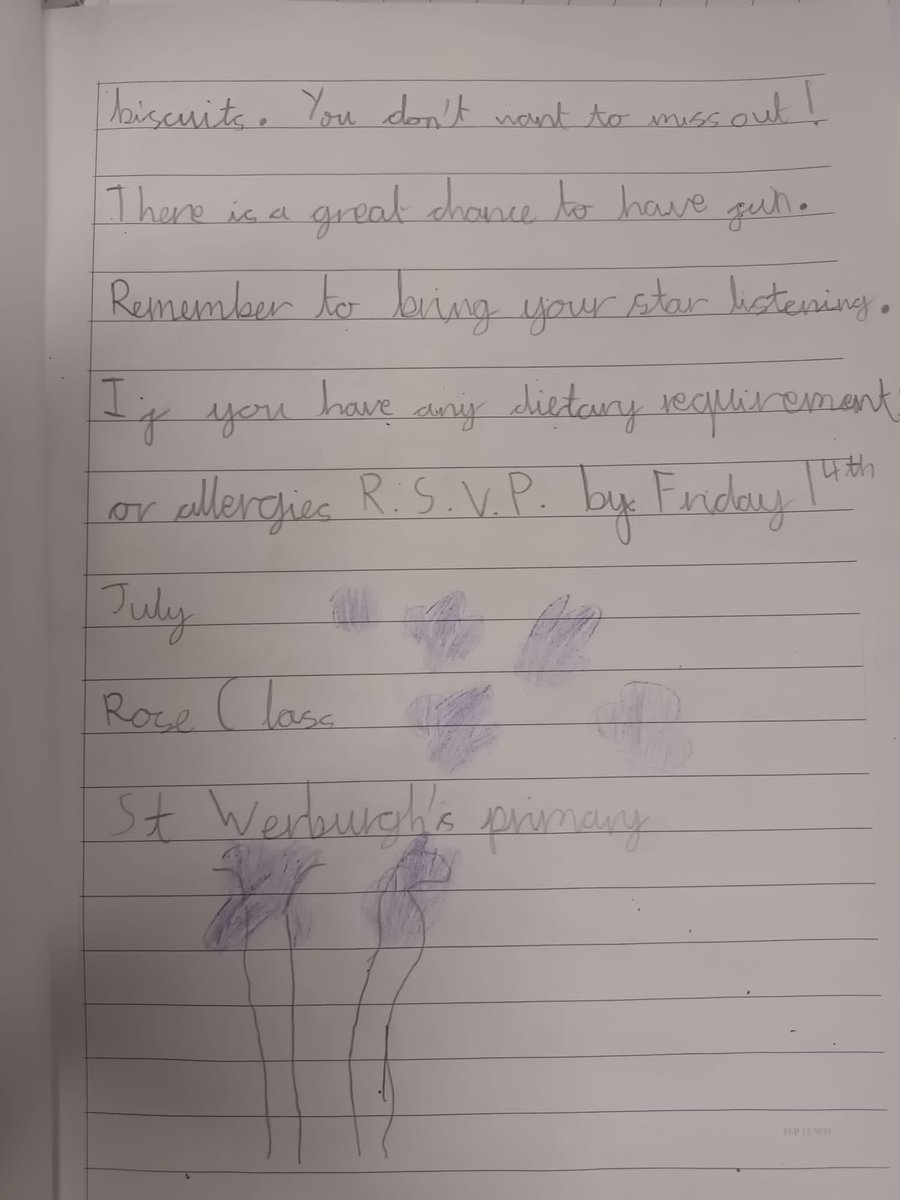 biscuits. You don't want to miss out!
There is a great chance to have fun.
Remember to bring your star listening.
If you have any dietary requirement
or allergies R.S.V.P. by Friday 14th
July
Rose Class
St Werburgh's primary